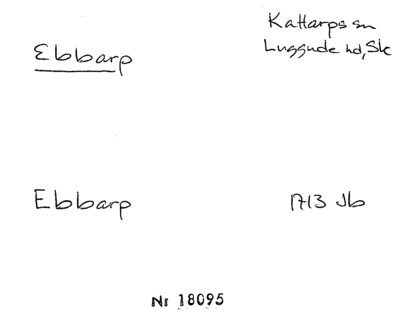 Ebbarp
Kattarps sn
Luggude hd, Sk
Ebbarp
1713 Jb
Nr 18095